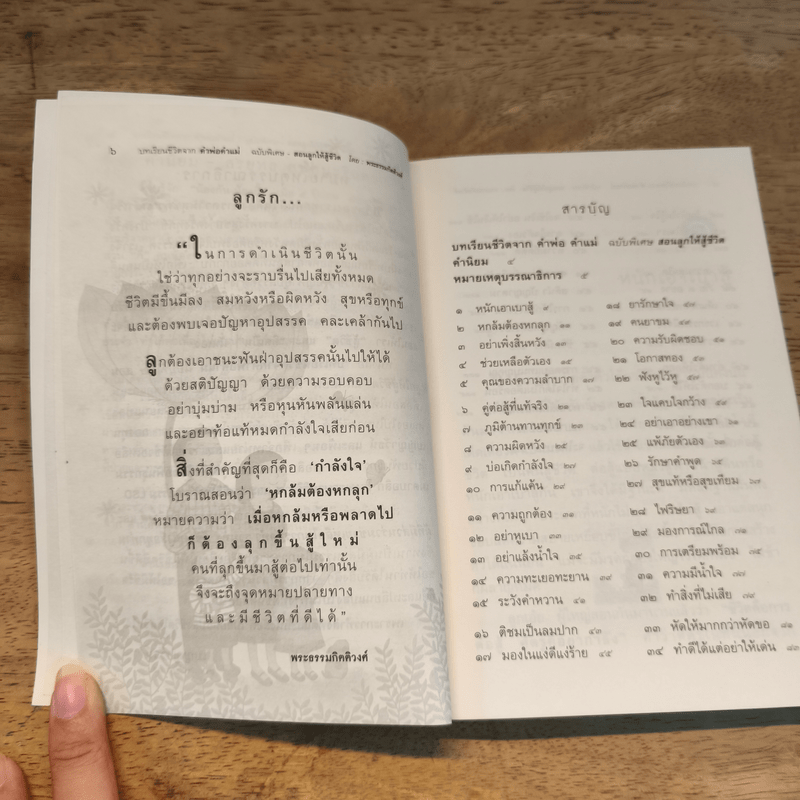 ๖ บทเรียนชีวิตจาก คำพ่อคำแม่ ฉบับพิเศษ - สอนลูกให้สู้ชีวิต โดย พระธรรมกิตติวงศ์
ลูกรัก...
"ในการดำเนินชีวิตนั้น
ใช่ว่าทุกอย่างจะราบรื่นไปเสียทั้งหมด
ชีวิตมีขึ้นมีลง สมหวังหรือผิดหวัง สุขหรือทุกข์
และต้องพบเจอปัญหาอุปสรรค คละเคล้ากันไป
ลูกต้องเอาชนะฟันฝ่าอุปสรรคนั้นไปให้ได้
ด้วยสติปัญญา ด้วยความรอบคอบ
อย่าบุ่มบ่าม หรือหุนหันพลันแล่น
และอย่าท้อแท้หมดกำลังใจเสียก่อน
สิ่งที่สำคัญที่สุดก็คือ 'กำลังใจ'
โบราณสอนว่า 'หกล้มต้องหกลุก'
หมายความว่า เมื่อหกล้มหรือพลาดไป
ก็ต้องลุกขึ้นสู้ใหม่
คนที่ลุกขึ้นมาสู้ต่อไปเท่านั้น
จึงจะถึงจุดหมายปลายทาง
และมีชีวิตที่ดีได้"
พระธรรมกิตติวงศ์
สารบัญ
บทเรียนชีวิตจาก คำพ่อ คำแม่ ฉบับพิเศษ สอนลูกให้สู้ชีวิต
คำนิยม ๔
หมายเหตุบรรณาธิการ ๕
๑ หนักเอาเบาสู้ ๙
๒ หกล้มต้องหกลุก ๑๑
๓ อย่าเพิ่งสิ้นหวัง ๑๓
๔ ช่วยเหลือตัวเอง ๑๕
๕ คุณของความลำบาก ๑๗
๖ คู่ต่อสู้ที่แท้จริง ๒๑
๗ ภูมิต้านทานทุกข์ ๒๓
๘ ความผิดหวัง ๒๕
๙ บ่อเกิดกำลังใจ ๒๗
๑๐ การแก้แค้น ๒๙
๑๑ ความถูกต้อง ๓๑
๑๒ อย่าหูเบา ๓๓
๑๓ อย่าแล้งน้ำใจ ๓๕
๑๔ ความทะเยอทะยาน ๓๙
๑๕ ระวังคำหวาน ๔๑
๑๖ ติชมเป็นลมปาก ๔๓
๑๗ มองในแง่ดีแง่ร้าย ๔๕
๑๘ ยารักษาใจ ๔๗
๑๙ คนยาขม ๔๙
๒๐ ความรับผิดชอบ ๕๑
๒๑ โอกาสทอง ๕๓
๒๒ ฟังหูไว้หู ๕๗
๒๓ ใจแคบใจกว้าง ๕๙
๒๔ อย่าเอาอย่างเขา ๖๑
๒๕ แพ้ภัยตัวเอง ๖๓
๒๖ รักษาคำพูด ๖๕
๒๗ สุขแท้หรือสุขเทียม ๖๗
๒๘ ไฟริษยา ๖๙
๒๙ มองการณ์ไกล ๗๑
๓๐ การเตรียมพร้อม ๗๕
๓๑ ความมีน้ำใจ ๗๗
๓๒ ทำสิ่งที่ไม่เสีย ๗๙
๓๓ หัดให้มากกว่าหัดขอ ๘๑
๓๔ ทำดีได้แต่อย่าให้เด่น ๘๓